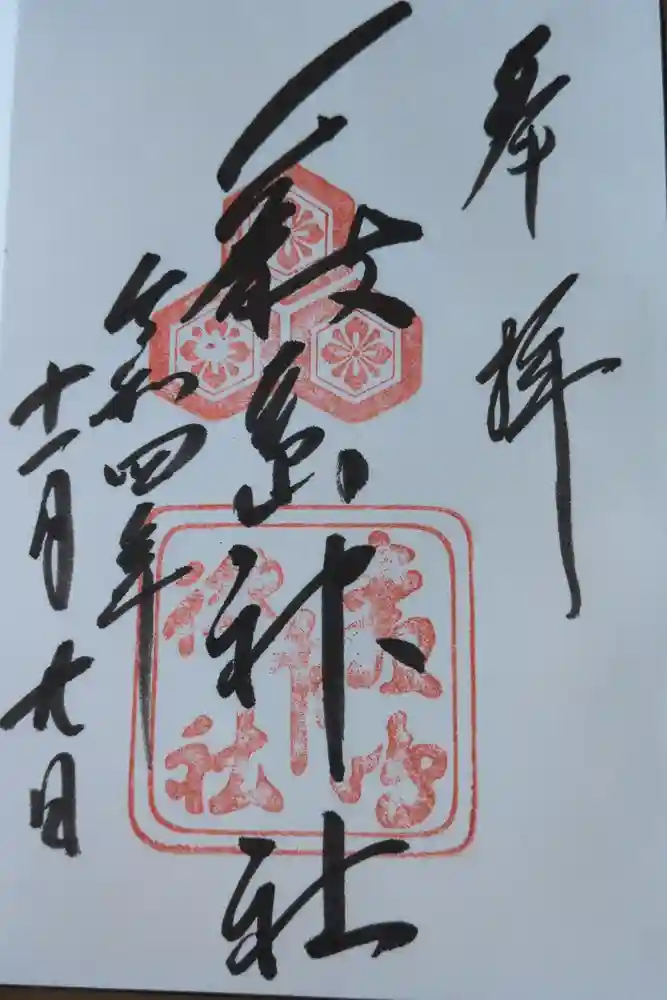 奉拝
厳島神社
令和四年
十一月九日